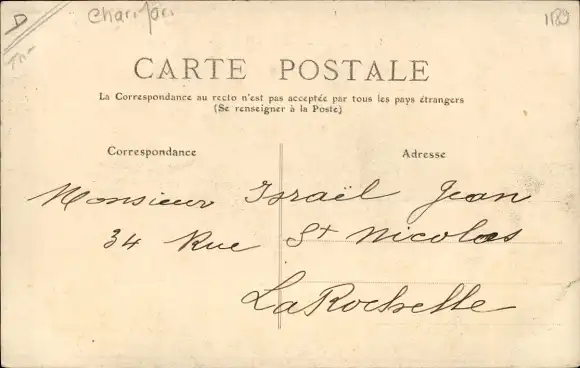 CARTE POSTALE
La Correspondance au recto n'est pas acceptée par tous les pays étrangers
(Se renseigner à la Poste)
Correspondance
Adresse
Monsieur Israël Jean
34 Rue St Nicolas
La Rochelle